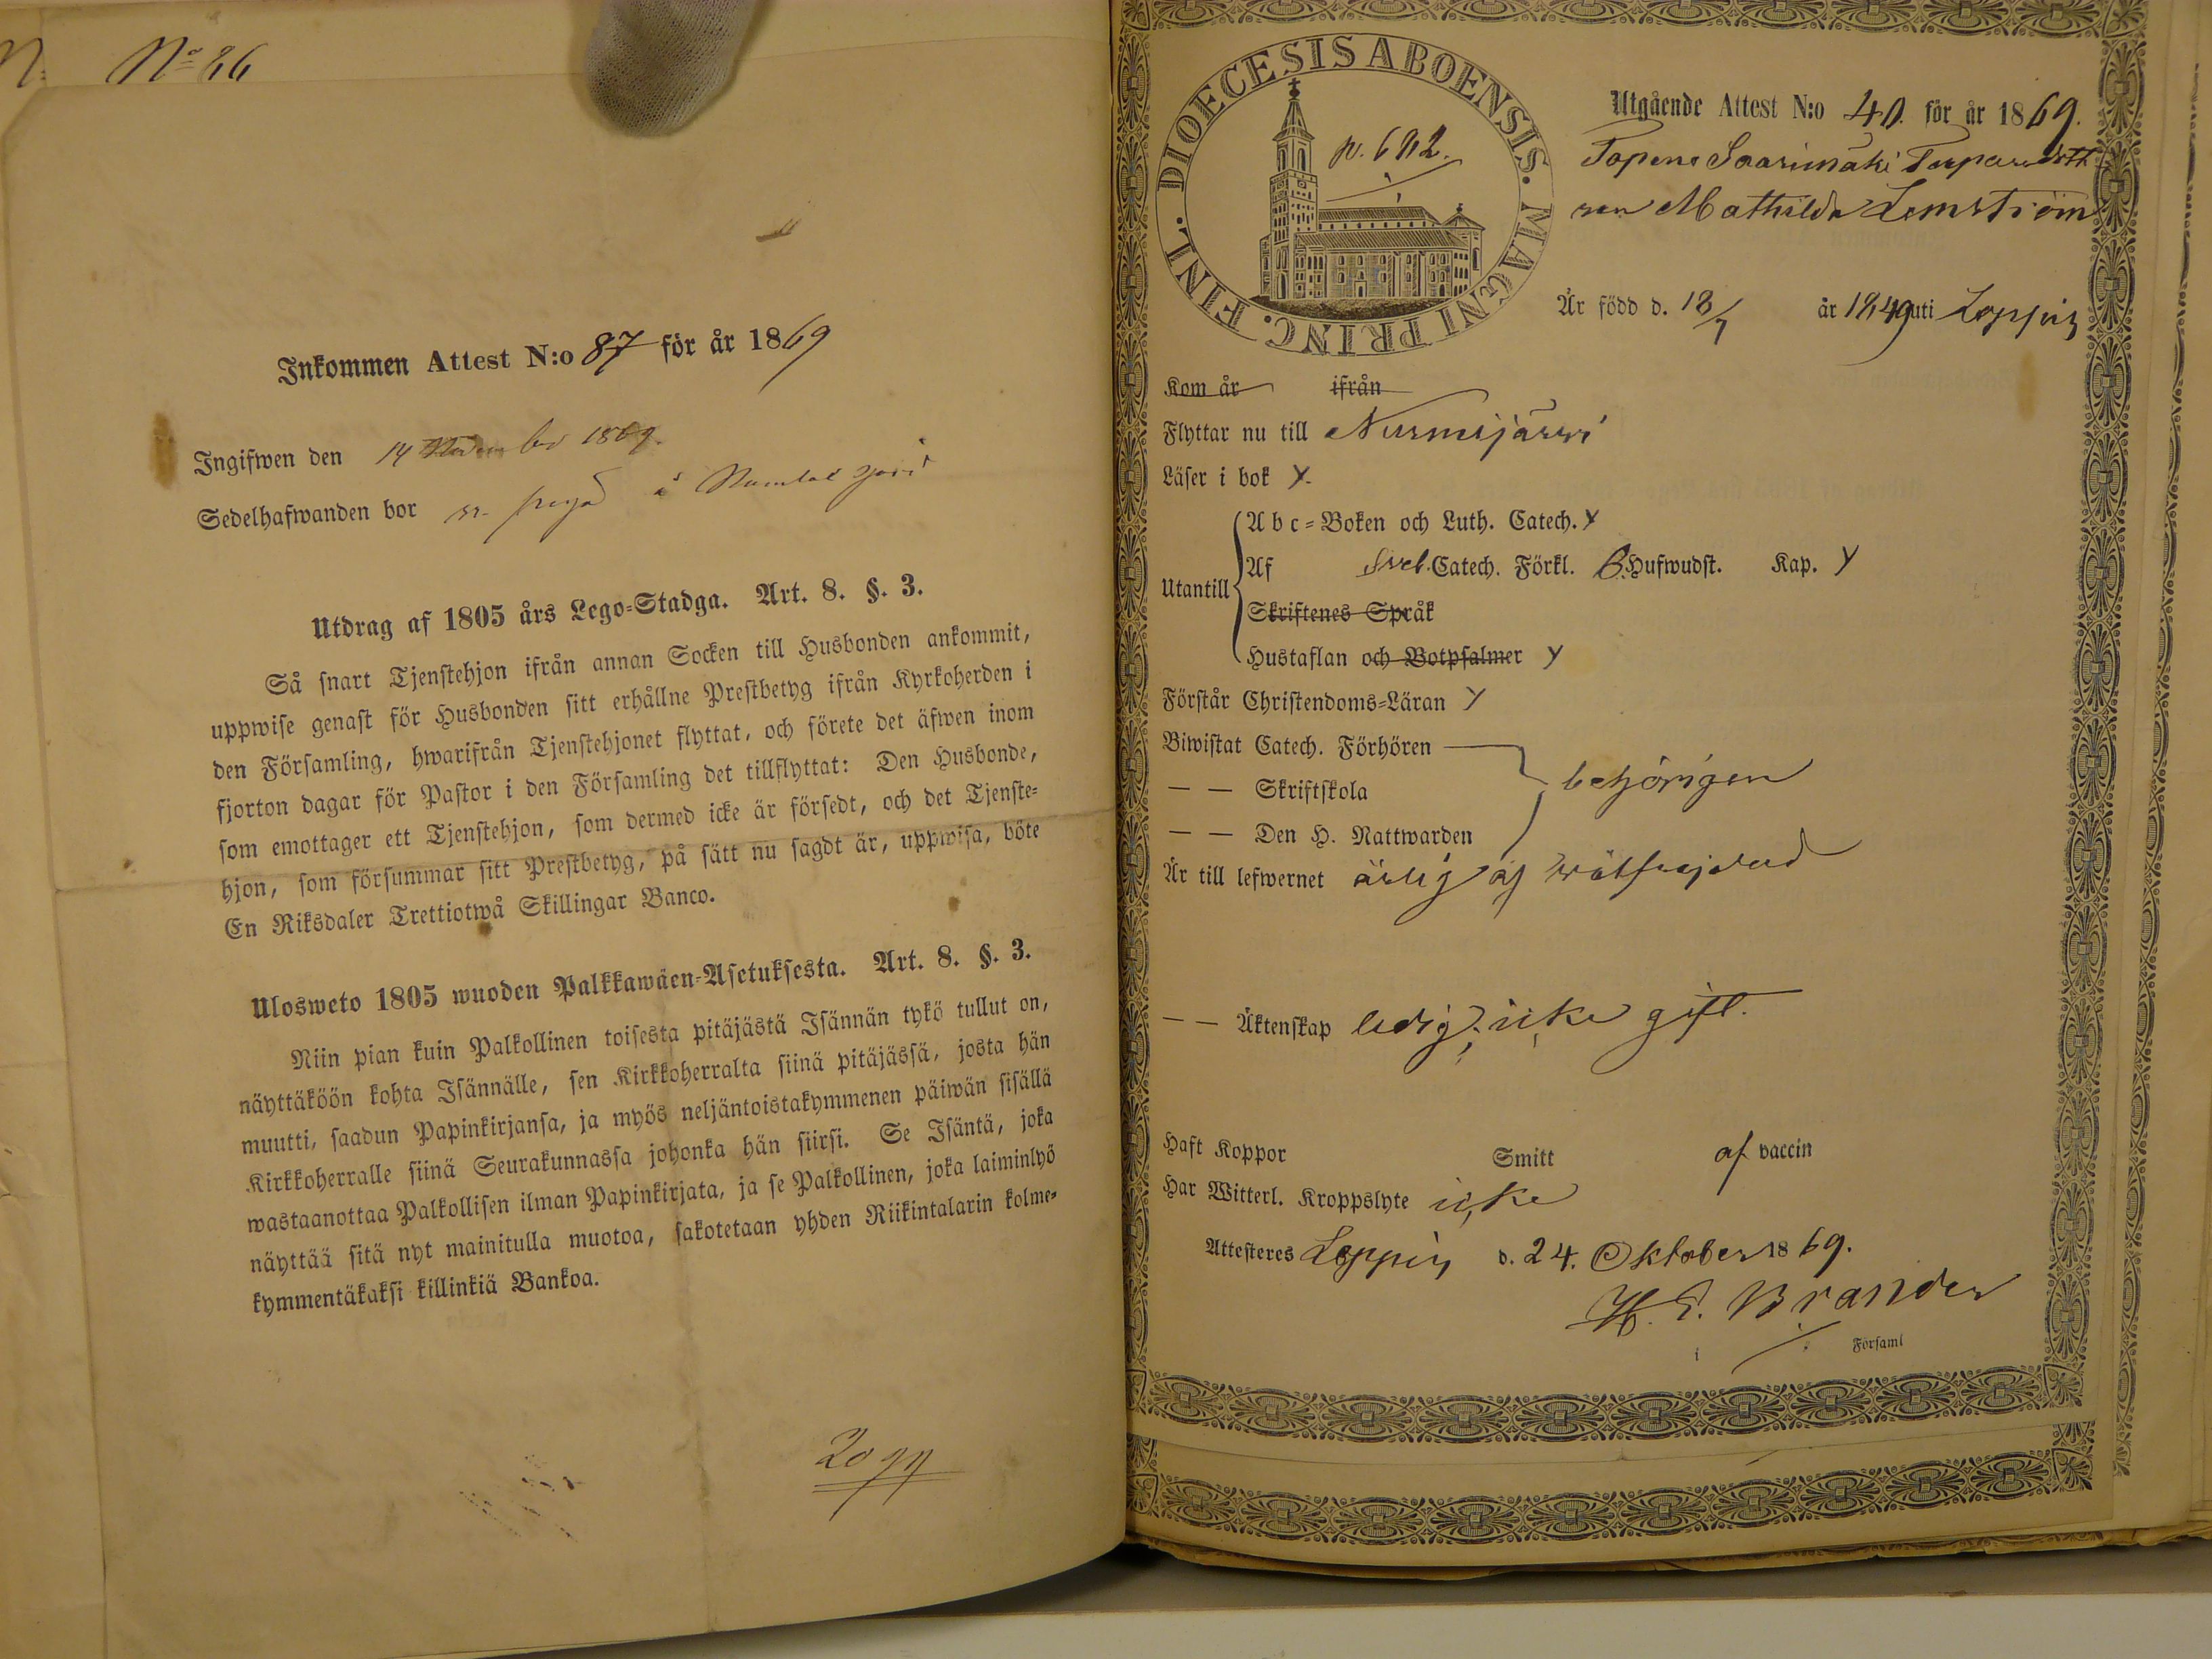 No 86
Inkommen Attest N:o 87 för år 1869
Ingifwen den 14 November 1869.
Sedelhafwanden bor å
Utdrag af 1805 års Lego-Stadga. Art. 8. §. 3.
Så snart Tjenstehjon ifrån annan Socken till Husbonden ankommit,
uppwise genast för Husbonden sitt erhållne Prestbetyg ifrån Kyrkoherden i
den Församling, hwarifrån Tjenstehjonet flyttat, och förete det äfwen inom
fjorton dagar för Pastor i den Församling det tillflyttat: Den Husbonde,
som emottager ett Tjenstehjon, som dermed icke är försedt, och det Tjenste-
hjon, som försummar sitt Prestbetyg, på sätt nu sagdt är, uppwisa, böte
En Riksdaler Trettiotwå Skillingar Banco.
Ulosweto 1805 wuoden Palkkawäen-Asetuksesta. Art. 8. §. 3.
Niin pian kuin Palkollinen toisesta pitäjästä Isännän tykö tullut on,
näyttäköön kohta Isännälle, sen Kirkkoherralta siinä pitäjässä, josta hän
muutti, saadun Papinkirjansa, ja myös neljäntoistakymmenen päiwän sisällä
Kirkkoherralle siinä Seurakunnassa johonka hän siirsi. Se Isäntä, joka
wastaanottaa Palkollisen ilman Papinkirjata, ja se Palkollinen, joka laiminlyö
näyttää sitä nyt mainitulla muotoa, sakotetaan yhden Riikintalarin kolme-
kymmentäkaksi killinkiä Bankoa.
DIOECESIS ABOENSIS. MAGNI PRINC. FINL.
p. 692.
Utgående Attest N:o 40. för år 1869.
Topeno Saarimäki Torparedott
ren Mathilda Lemström
Är född d. 18/7 år 1849 uti Loppis
Kom år ifrån
Flyttar nu till Nurmijärvi
Läser i bok y.
Utantill
A b c-Boken och Luth. Catech. y
Af Sveb. Catech. Förkl. 6 Hufwudst. Kap. y
Skriftenes Språk
Hustaflan och Botpsalmer y
Förstår Christendoms-Läran y
Biwistat Catech. Förhören
— — Skriftskola behörigen
— — Den H. Nattwarden
Är till lefwernet ärlig och wälfrejdad
— — Äktenskap ledig; icke gift.
Haft Koppor Smitt af vaccin
Har Witterl. Kroppslyte icke
Attesteres Loppis d. 24. Oktober 1869.
H. E. Brander
i Församl